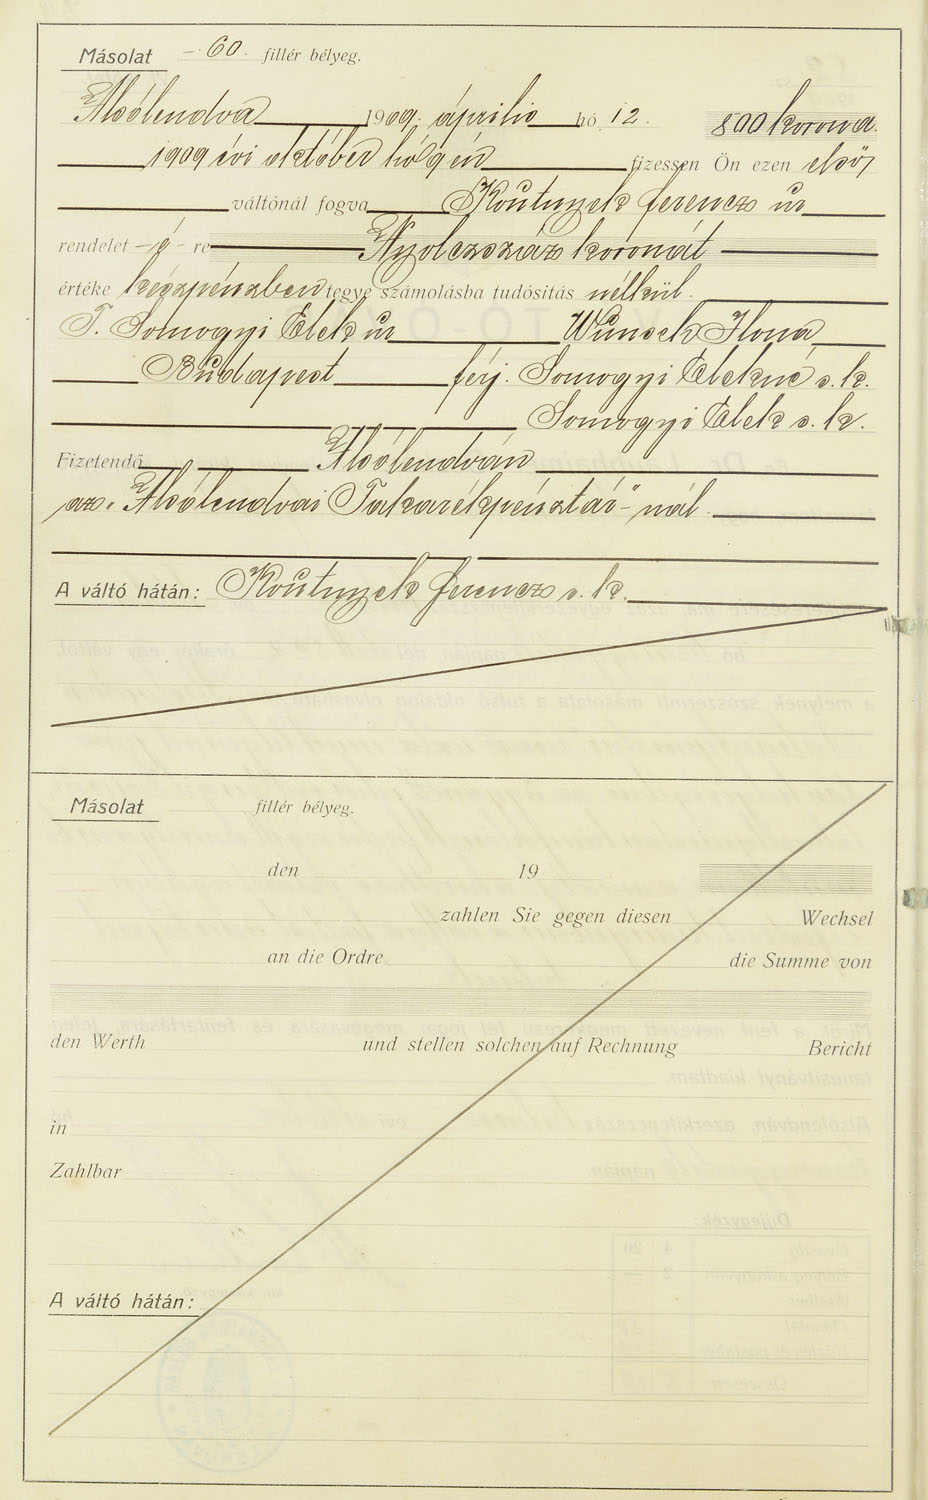 Másolat – 60. fillér bélyeg.
Alsólendva 1909. április hó 12. 800 korona.
1909 évi október hó 9 én fizessen Ön ezen első
váltónál fogva Koŭtnyek ferencz úr
rendelet –é– re Nyolczszáz koronát
értéke készpénzben tegye számolásba tudósítás nélkül.
T. Somogyi Elek úr Wŭnsch Ilona
Bŭdapest férj. Somogyi Elekné s. k.
Somogyi Elek s. k.
Fizetendő Alsólendván
az „Alsólendvai Takarékpénztár”-nál.
A váltó hátán: Koŭtnyek ferencz s. k.
Másolat fillér bélyeg.
den 19
zahlen Sie gegen diesen Wechsel
an die Ordre die Summe von
den Werth und stellen solchen auf Rechnung Bericht
in
Zahlbar
A váltó hátán: